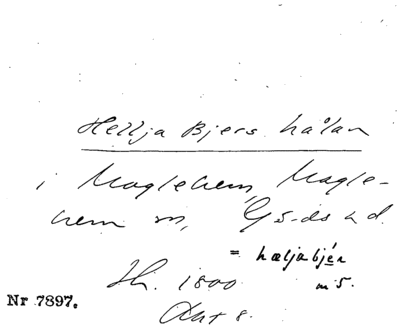 Hellja Bjers hålan
i Maglehem, Magle-
hem sn, Gärds hd.
= hæljabjén
m 5.
Th. 1800
Nr 7897.